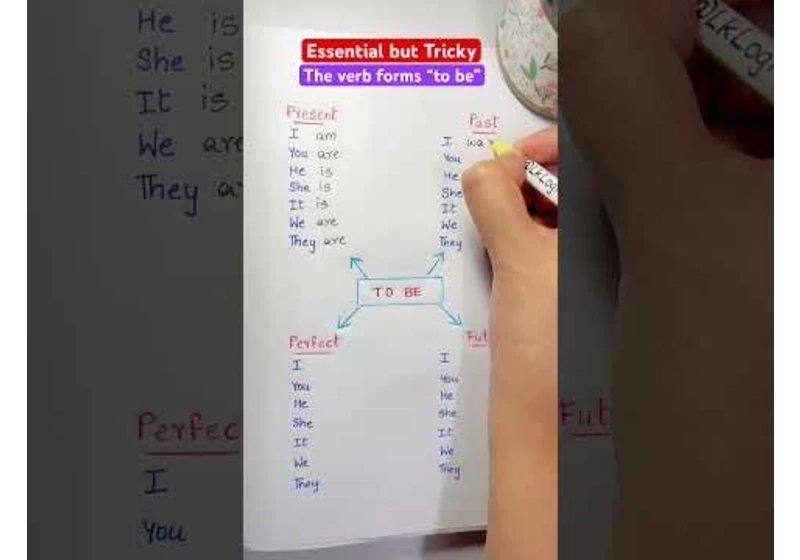 Essential but Tricky
The verb forms "to be"
Present
I am
You are
He is
She is
It is
We are
They are
Past
I wa
You
He
She
It
We
They
TO BE
Perfect
I
You
He
She
It
We
They
Fut
I
You
He
She
It
We
They
He is
She is
It is
We are
They a
Perfec
I
You
Fut
@LkLog
LkLog